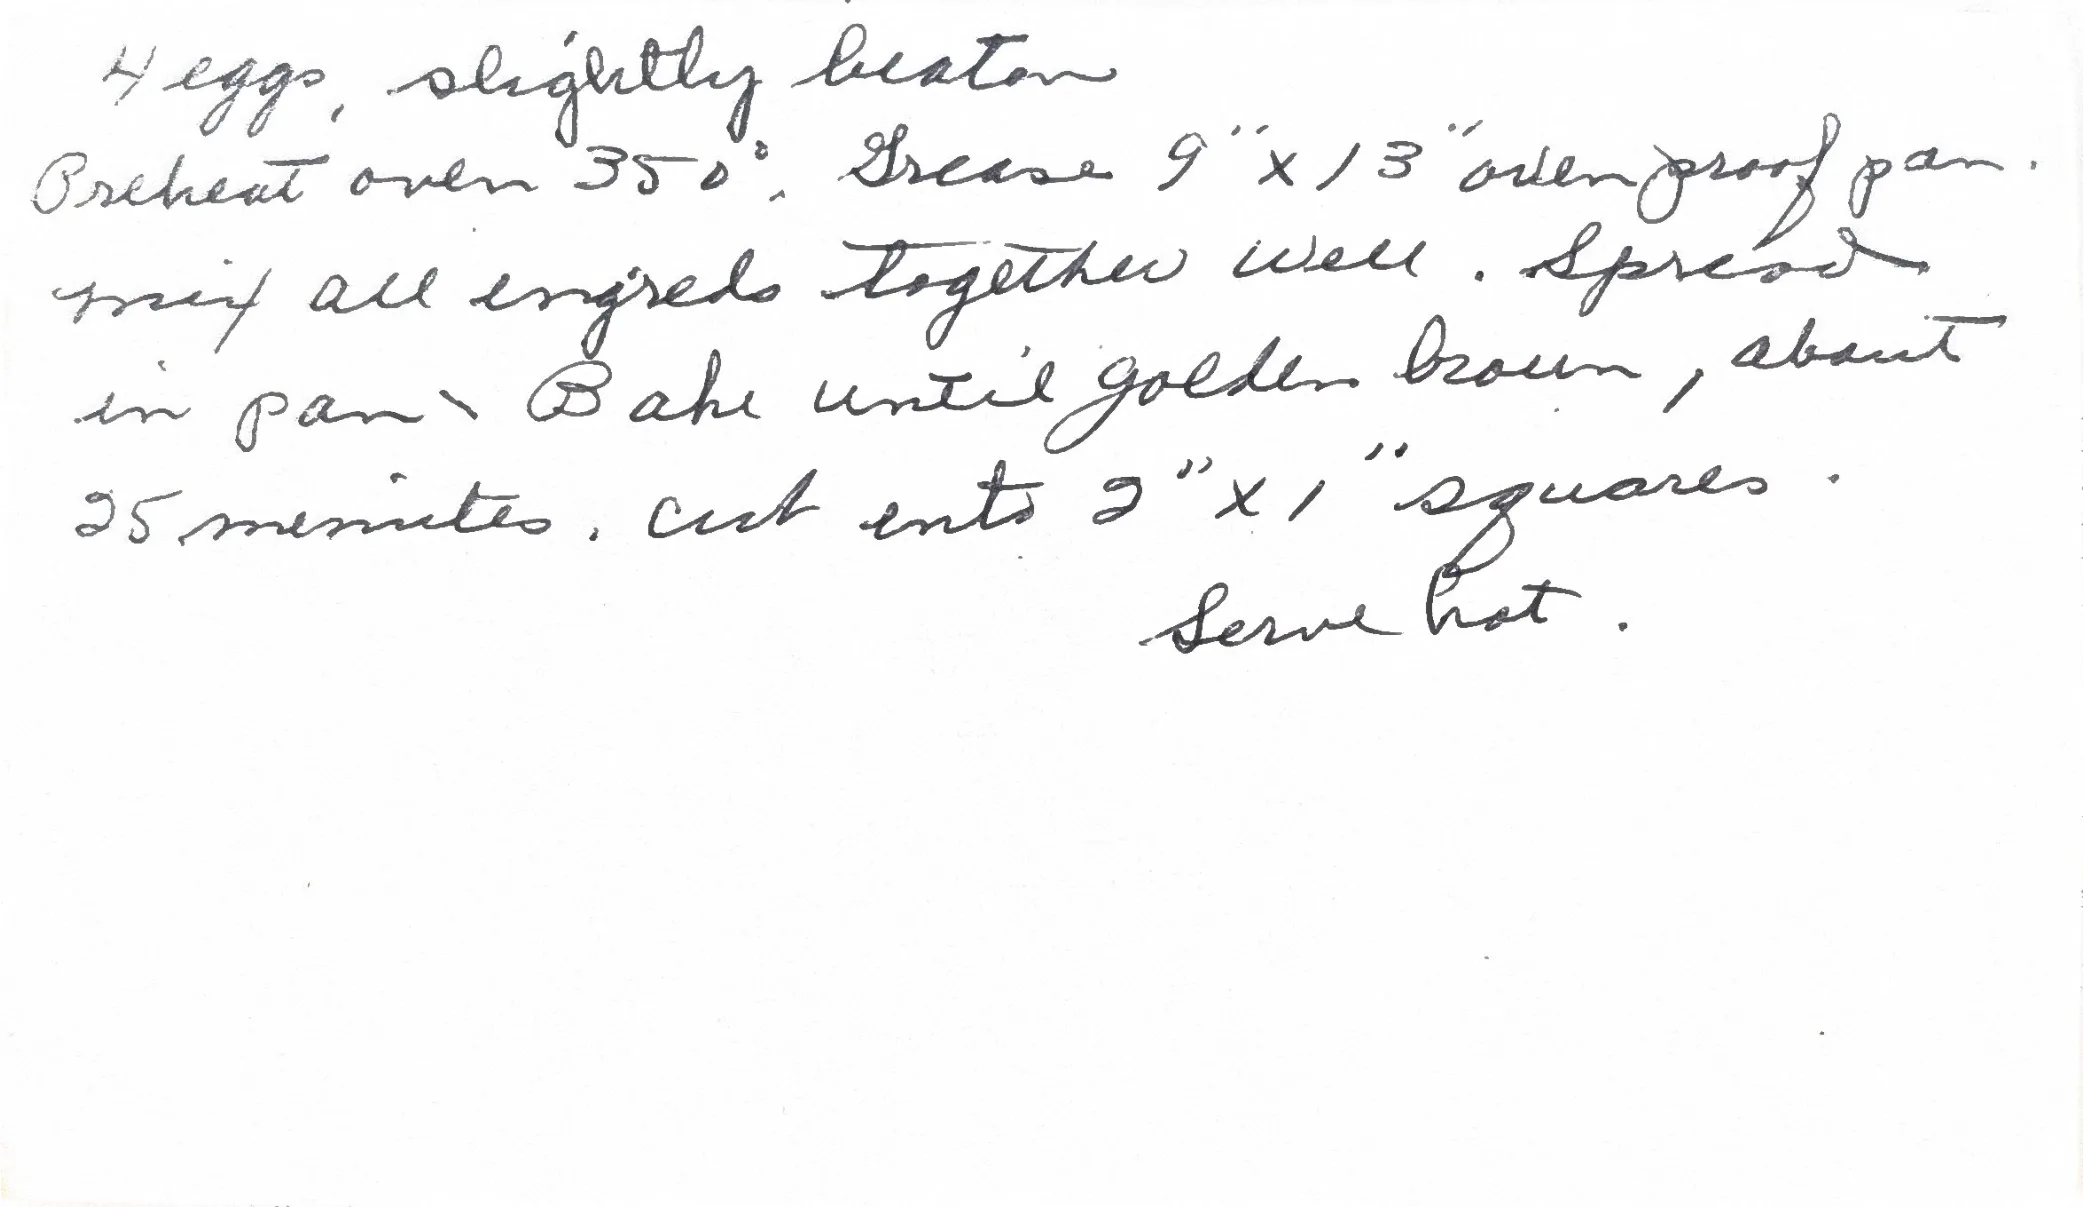 4 eggs, slightly beaten
Preheat oven 350°. Grease 9" x 13" oven proof pan.
mix all ingreds together well. Spread
in pan. Bake until golden brown, about
25 minutes. Cut into 2" x 1" squares.
Serve hot.